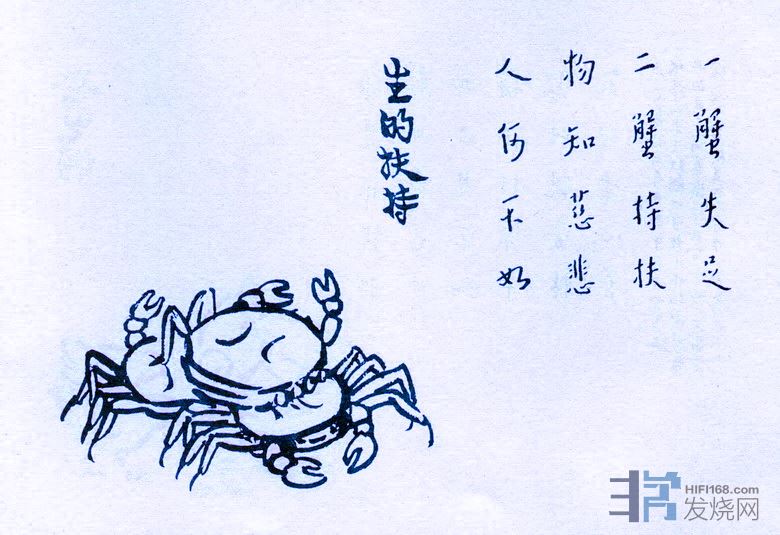 一蟹失足
二蟹持扶
物知慈悲
人何不如
生的扶持
HIFI168.com
发烧网